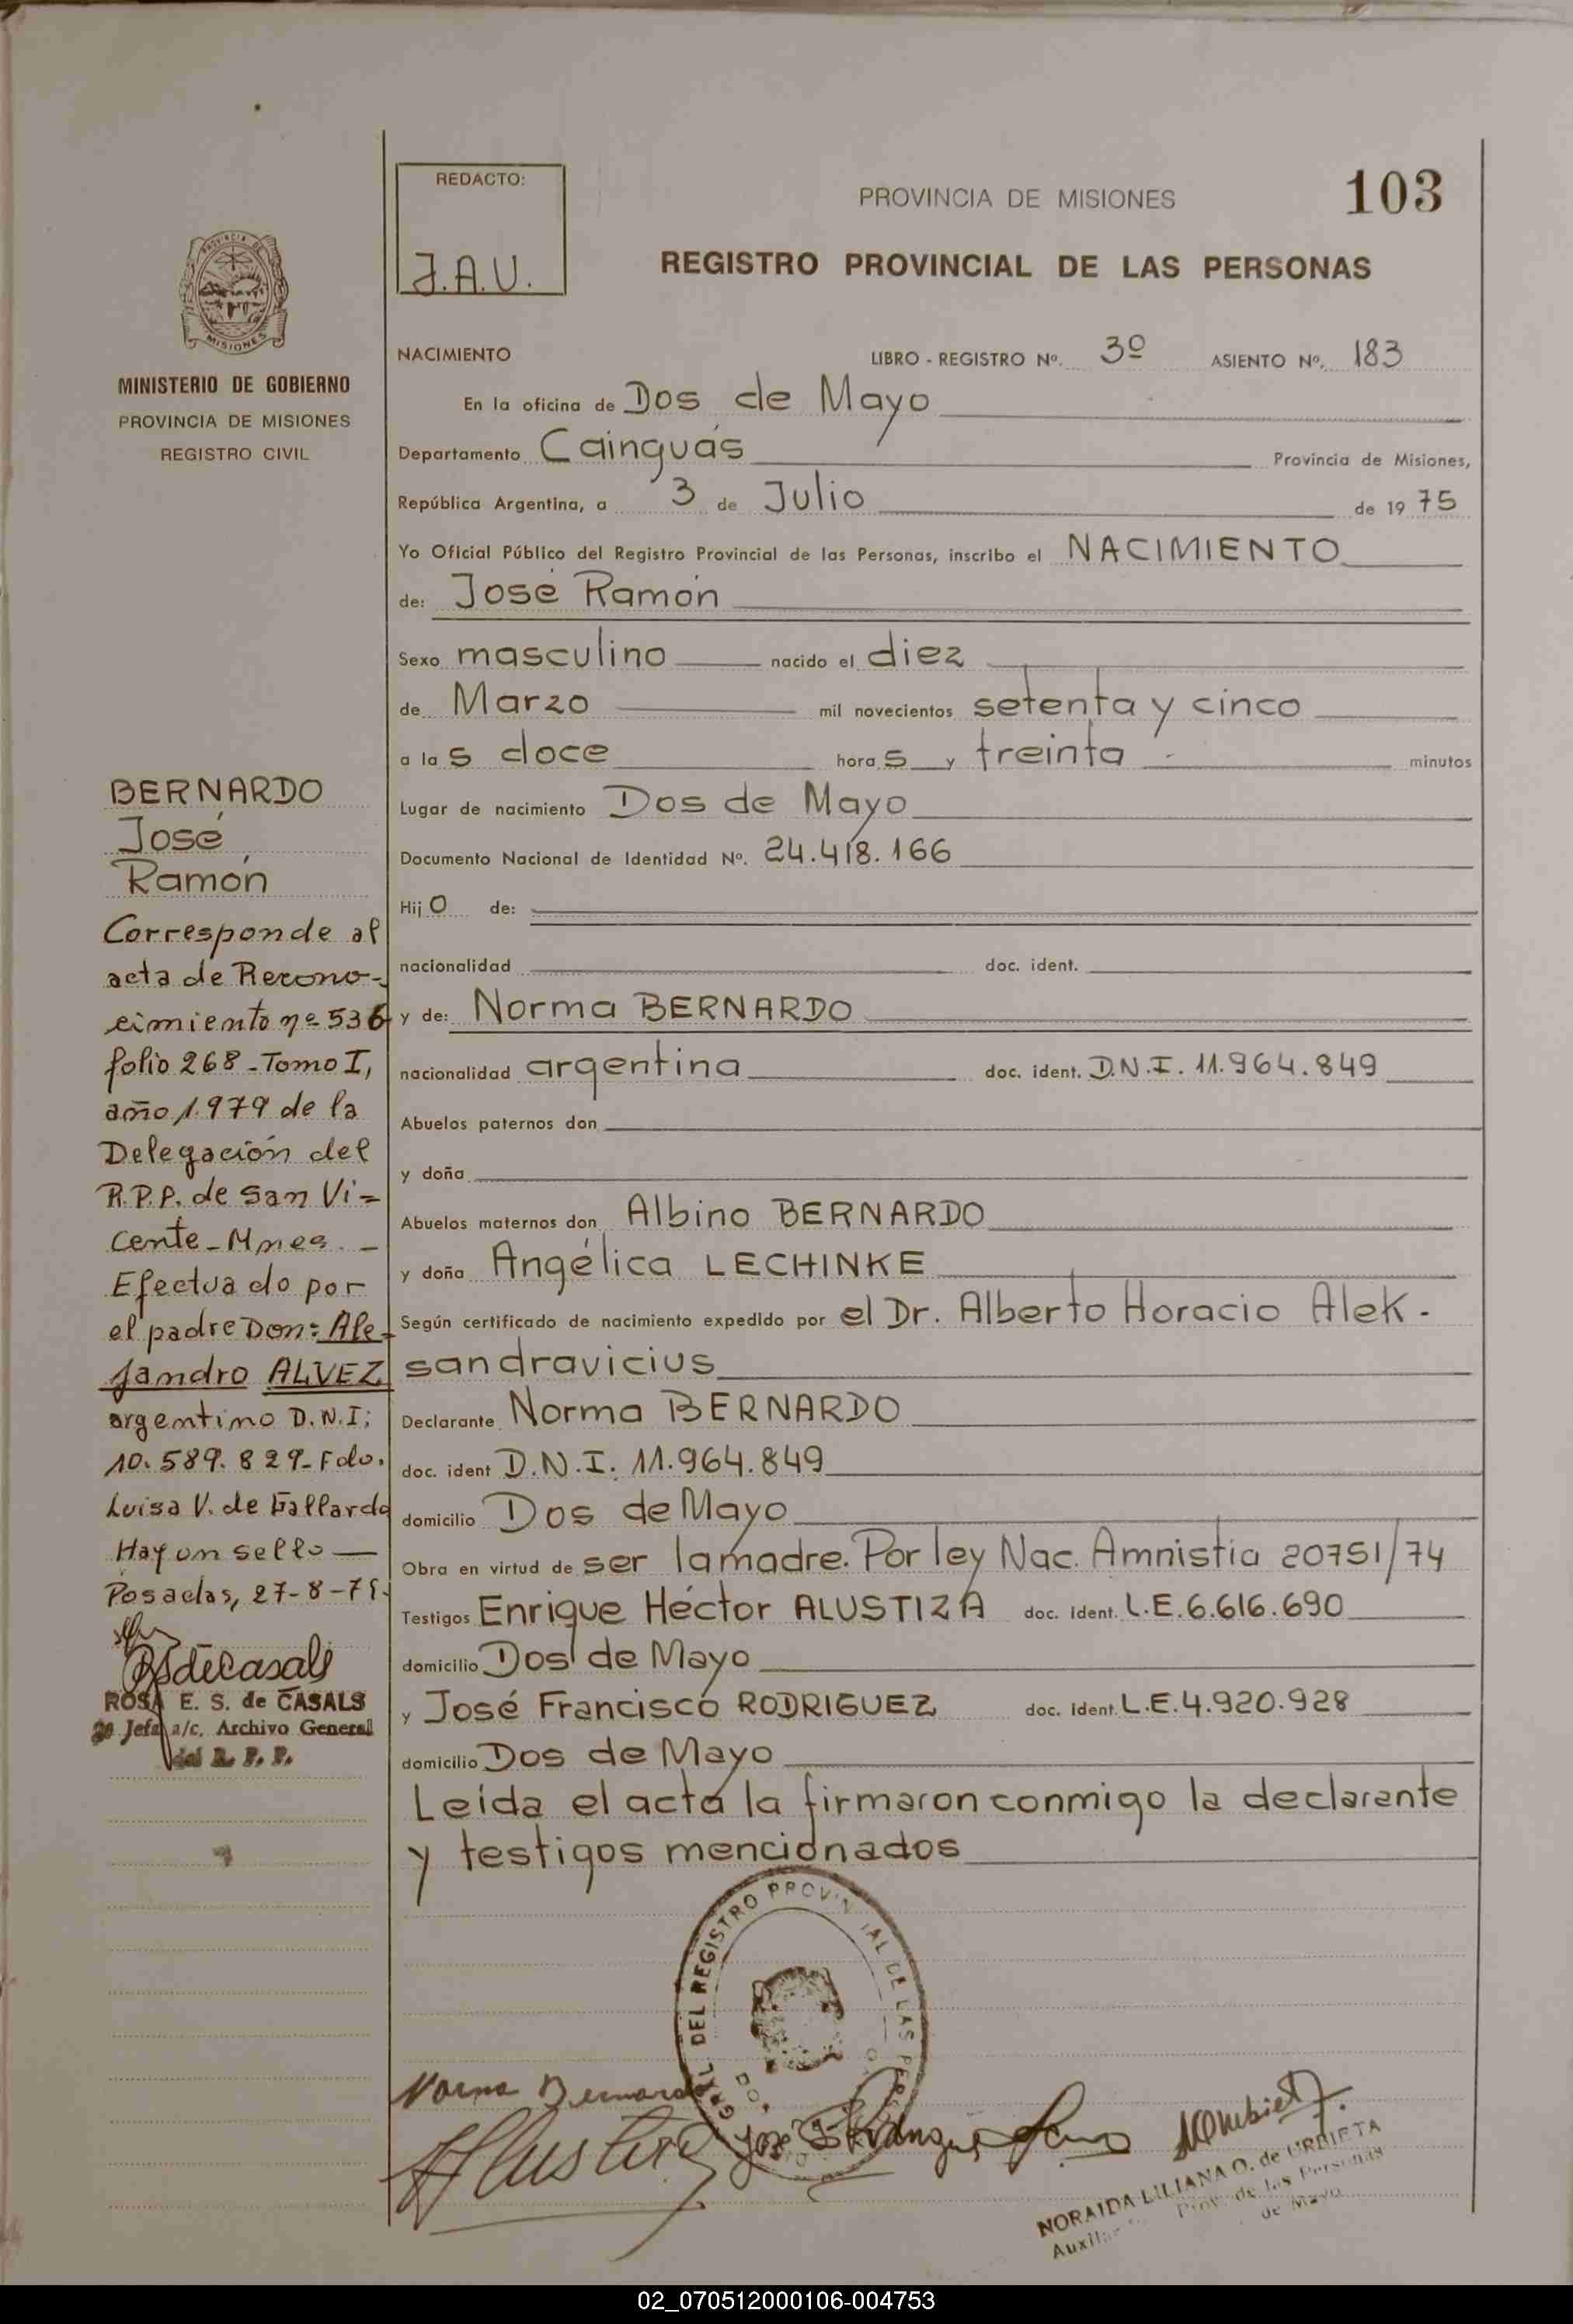 REDACTO:
J.A.U.
PROVINCIA DE MISIONES
103
REGISTRO PROVINCIAL DE LAS PERSONAS
PROVINCIA DE
MISIONES
MINISTERIO DE GOBIERNO
PROVINCIA DE MISIONES
REGISTRO CIVIL
NACIMIENTO LIBRO - REGISTRO Nº. 3º ASIENTO Nº. 183
En la oficina de Dos de Mayo
Departamento Cainguás Provincia de Misiones,
República Argentina, a 3 de Julio de 1975
Yo Oficial Público del Registro Provincial de las Personas, inscribo el NACIMIENTO
de: José Ramón
Sexo masculino nacido el diez
de Marzo mil novecientos setenta y cinco
a las doce horas y treinta minutos
Lugar de nacimiento Dos de Mayo
Documento Nacional de Identidad Nº. 24.418.166
Hijo de:
nacionalidad doc. ident.
y de: Norma BERNARDO
nacionalidad argentina doc. ident. D.N.I. 11.964.849
Abuelos paternos don
y doña
Abuelos maternos don Albino BERNARDO
y doña Angélica LECHINKE
Según certificado de nacimiento expedido por el Dr. Alberto Horacio Alek-
sandravicius
Declarante Norma BERNARDO
doc. ident D.N.I. 11.964.849
domicilio Dos de Mayo
Obra en virtud de ser la madre. Por ley Nac. Amnistia 20751/74
Testigos Enrique Héctor ALUSTIZA doc. ident. L.E. 6.616.690
domicilio Dos de Mayo
y José Francisco RODRIGUEZ doc. ident. L.E. 4.920.928
domicilio Dos de Mayo
Leída el acta la firmaron conmigo la declarante
y testigos mencionados
BERNARDO
José
Ramón
Corresponde al
acta de Recono-
cimiento nº 536
folio 268 - Tomo I,
año 1.979 de la
Delegación del
R.P.P. de San Vi=
cente - Mnes. -
Efectuado por
el padre Don: Ale-
jandro ALVEZ
argentino D.N.I;
10.589.829 - Fdo.
Luisa V. de Gallardo
Hay un sello
Posadas, 27-8-79.
ROSA E. S. de CASALS
Jefa a/c. Archivo General
del R. P. P.
DEL REGISTRO PROVINCIAL DE LAS
Norma Bernardo
NORAIDA LILIANA O. de URBIETA
Prov. de las Personas
de Mayo
02_070512000106-004753